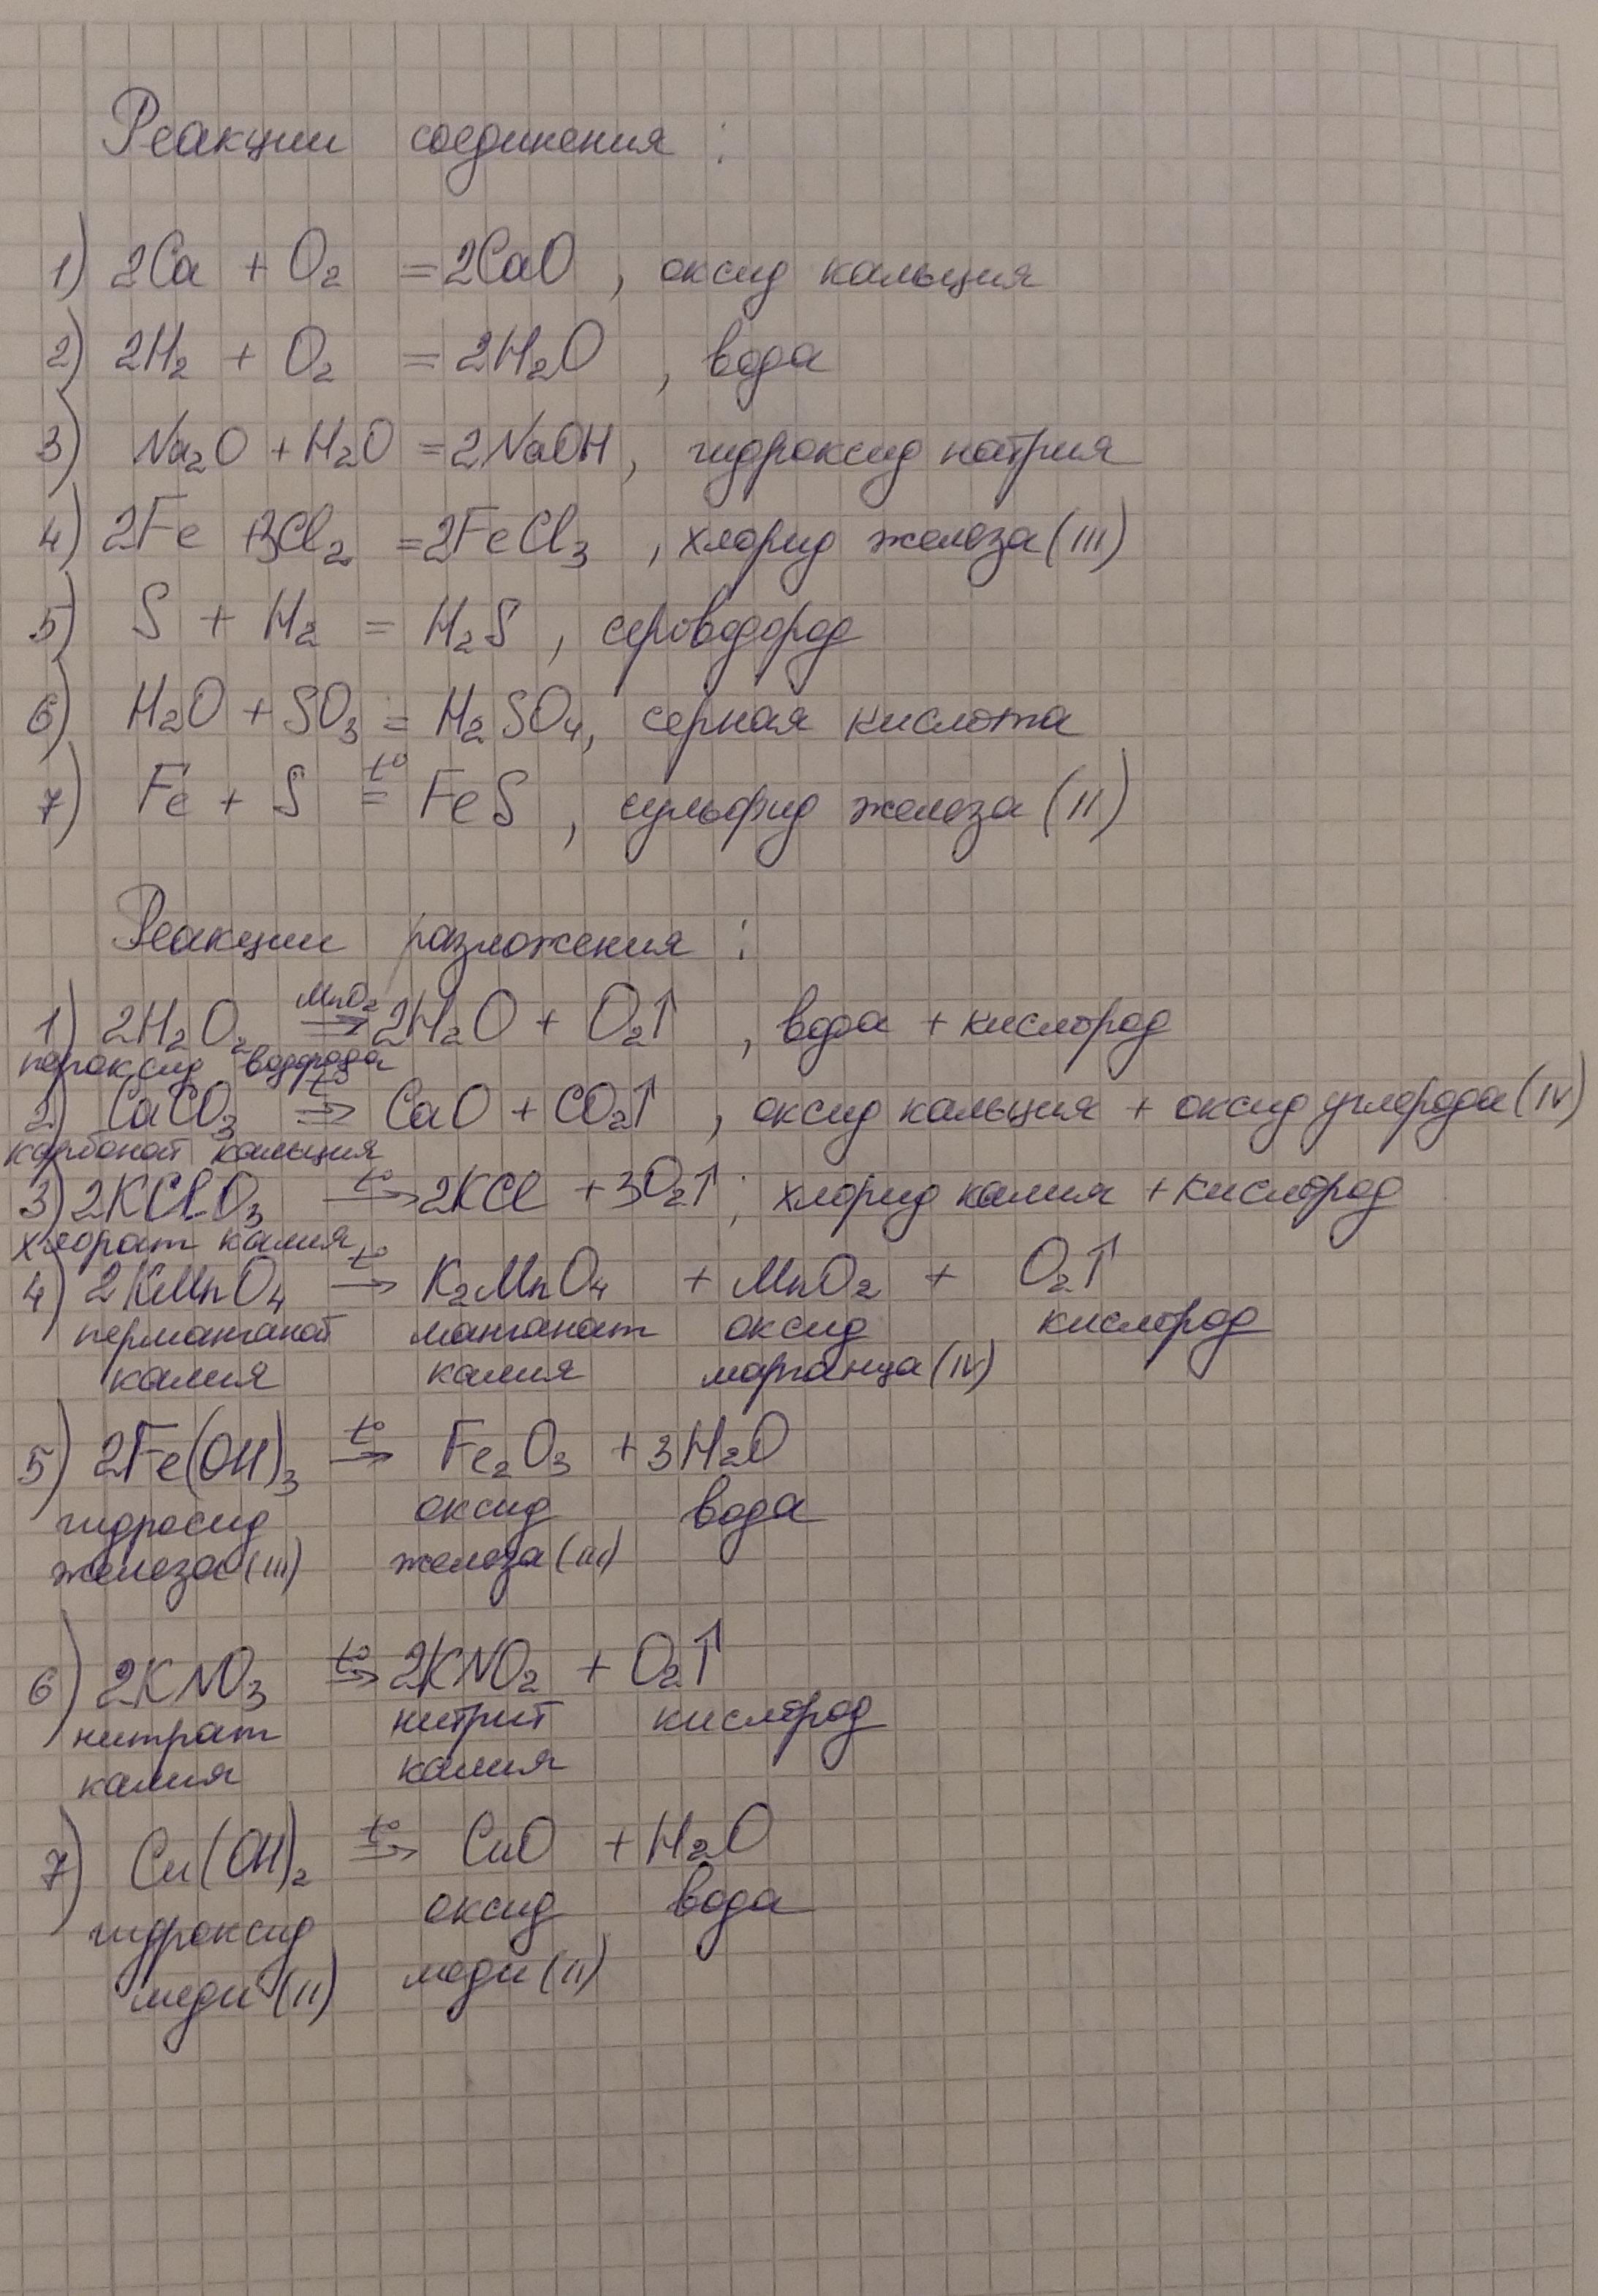 Реакции соединения :
1) 2Ca + O₂ = 2CaO , оксид кальция
2) 2H₂ + O₂ = 2H₂O , вода
3) Na₂O + H₂O = 2NaOH, гидроксид натрия
4) 2Fe + 3Cl₂ = 2FeCl₃ , хлорид железа (III)
5) S + H₂ = H₂S , сероводород
6) H₂O + SO₃ = H₂SO₄, серная кислота
t°
7) Fe + S = FeS , сульфид железа (II)
Реакции разложения :
MnO₂
1) 2H₂O₂ → 2H₂O + O₂↑ , вода + кислород
пероксид водорода
t°
2) CaCO₃ → CaO + CO₂↑ , оксид кальция + оксид углерода (IV)
карбонат кальция
t°
3) 2KClO₃ → 2KCl + 3O₂↑ ; хлорид калия + кислород
хлорат калия
t°
4) 2KMnO₄ → K₂MnO₄ + MnO₂ + O₂↑
перманганат манганат оксид кислород
калия калия марганца (IV)
t°
5) 2Fe(OH)₃ → Fe₂O₃ + 3H₂O
гидросид оксид вода
железа (III) железа (III)
t°
6) 2KNO₃ → 2KNO₂ + O₂↑
нитрат нитрит кислород
калия калия
t°
7) Cu(OH)₂ → CuO + H₂O
гидроксид оксид вода
меди (II) меди (II)